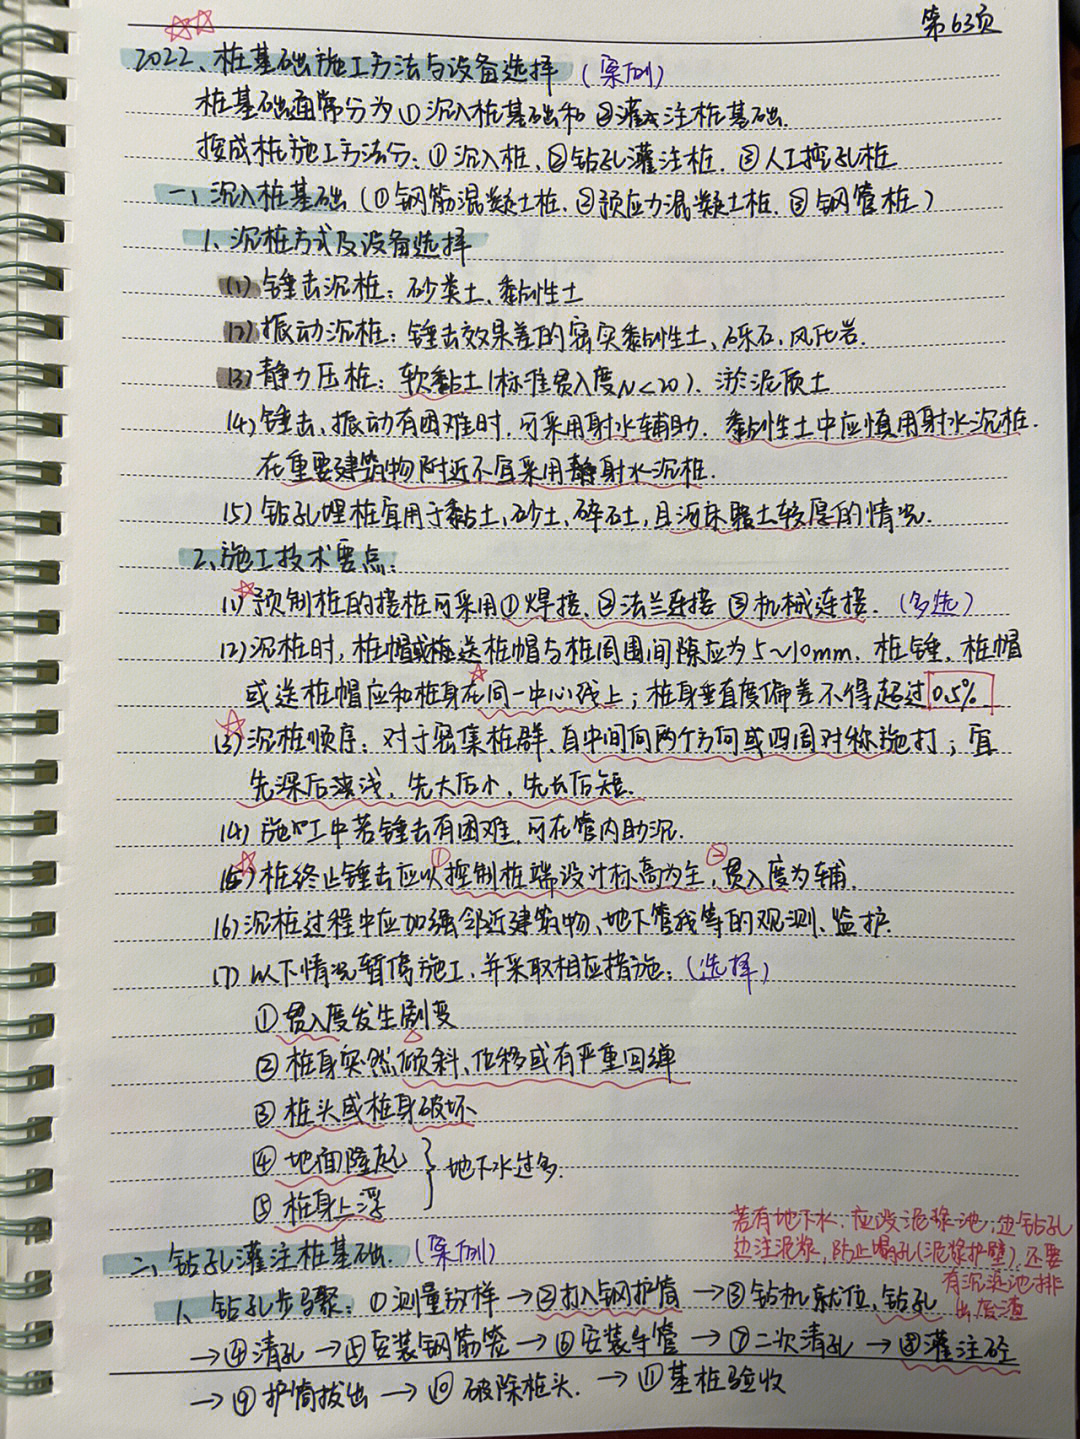 第63页
2022、桩基础施工方法与设备选择（案例）
桩基础通常分为①沉入桩基础和②灌注桩基础.
按成桩施工方法分：①沉入桩、②钻孔灌注桩、③人工挖孔桩
一、沉入桩基础（①钢筋混凝土桩、②预应力混凝土桩、③钢管桩）
1、沉桩方式及设备选择
(1)锤击沉桩：砂类土、黏性土
(2)振动沉桩：锤击效果差的密实黏性土、砾石、风化岩.
(3)静力压桩：软黏土(标准贯入度N<20)、淤泥质土
(4)锤击、振动有困难时，可采用射水辅助. 黏性土中应慎用射水沉桩.
在重要建筑物附近不宜采用射水沉桩.
(5)钻孔埋桩宜用于黏土、砂土、碎石土，且河床覆土较厚的情况.
2、施工技术要点：
(1)预制桩的接桩可采用①焊接、②法兰连接 ③机械连接.（多选）
(2)沉桩时，桩帽或送桩帽与桩周围间隙应为5~10mm. 桩锤、桩帽
或送桩帽应和桩身在同一中心线上；桩身垂直度偏差不得超过0.5%
(3)沉桩顺序：对于密集桩群，自中间向两个方向或四周对称施打；宜
先深后浅，先大后小，先长后短.
(4)施工中若锤击有困难，可在管内助沉.
(5)桩终止锤击应以①控制桩端设计标高为主，②贯入度为辅.
(6)沉桩过程中应加强邻近建筑物、地下管线等的观测、监护.
(7)以下情况暂停施工，并采取相应措施：（选择）
①贯入度发生剧变
②桩身突然倾斜、位移或有严重回弹
③桩头或桩身破坏
④地面隆起
⑤桩身上浮
} 地下水过多.
若有地下水，应设泥浆池；边钻孔
边注泥浆，防止塌孔(泥浆护壁)，还要
有沉淀池排
出废渣
二、钻孔灌注桩基础.（案例）
1、钻孔步骤：①测量放样→②打入钢护筒→③钻机就位、钻孔
→④清孔→⑤安装钢筋笼→⑥安装导管→⑦二次清孔→⑧灌注砼
→⑨护筒拔出→⑩破除桩头.→⑪基桩验收